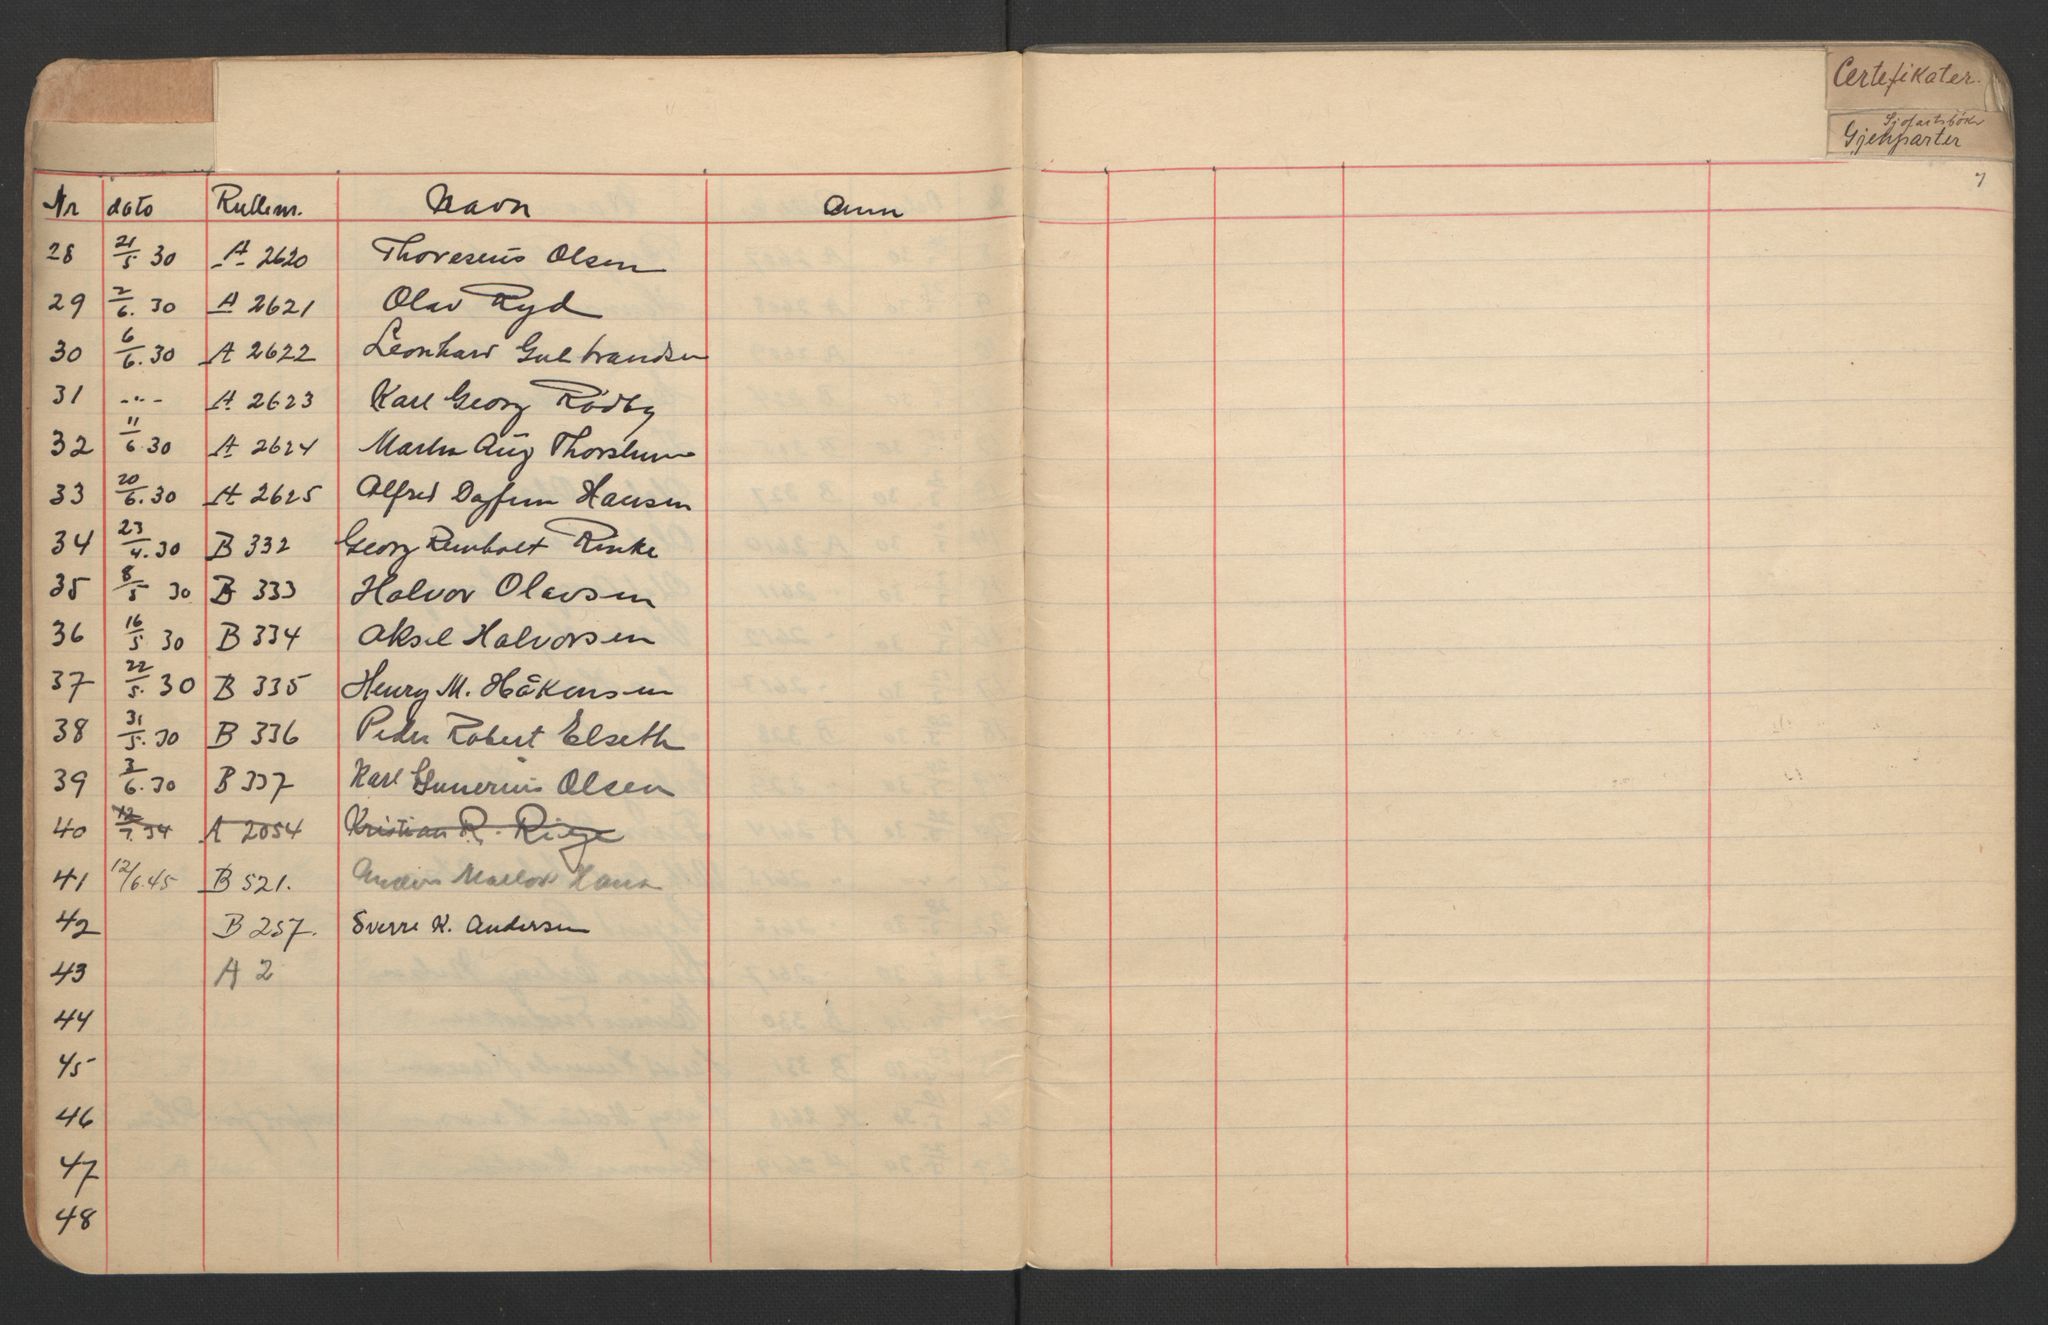 Certefikater.
Sjofartsbøker
Gjenparter
7
Nr dato Rullenr. Navn Anm
28 21/5 30 A 2620 Thoresens Olsen
29 2/6. 30 A 2621 Olav Ryd
30 6/6. 30 A 2622 Leonhard Gulbrandsen
31 -"- A 2623 Karl Georg Rødby
32 11/6 30 A 2624 Martin Aug Thorslund
33 20/6. 30 A 2625 Alfred Dagfinn Hansen
34 23/4. 30 B 332 Georg Reinholt Rinke
35 8/5 30 B 333 Halvor Olavsen
36 16/5 30 B 334 Aksel Halvorsen
37 22/5. 30 B 335 Henry M. Håkonsen
38 31/5. 30 B 336 Peder Robert Elseth
39 3/6. 30 B 337 Karl Gunerius Olsen
40 12/7. 34 A 2054 Kristian R.
41 12/6.45 B 521. Anders
42 B 257. Sverre K. Andersen
43 A 2
44
45
46
47
48